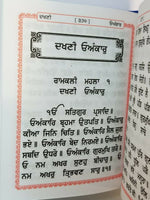 ਦਖਣੀ ਓਅੰਕਾਰੁ
ਦਖਣੀ ਓਅੰਕਾਰੁ
ਰਾਮਕਲੀ ਮਹਲਾ ੧
ਦਖਣੀ ਓਅੰਕਾਰੁ
ੴ ਸਤਿਗੁਰ ਪ੍ਰਸਾਦਿ ॥
ਓਅੰਕਾਰਿ ਬ੍ਰਹਮਾ ਉਤਪਤਿ ॥ ਓਅੰਕਾਰੁ
ਕੀਆ ਜਿਨਿ ਚਿਤਿ ॥ ਓਅੰਕਾਰਿ ਸੈਲ ਜੁਗ
ਭਏ ॥ ਓਅੰਕਾਰਿ ਬੇਦ ਨਿਰਮਏ ॥ ਓਅੰਕਾਰਿ
ਸਬਦਿ ਉਧਰੇ ॥ ਓਅੰਕਾਰਿ ਗੁਰਮੁਖਿ ਤਰੇ ॥
ਓਨਮ ਅਖਰ ਸੁਣਹੁ ਬੀਚਾਰੁ ॥ ਓ
ਨਮ ਅਖਰੁ ਤ੍ਰਿਭਵਣ ਸਾਰੁ ॥੧॥